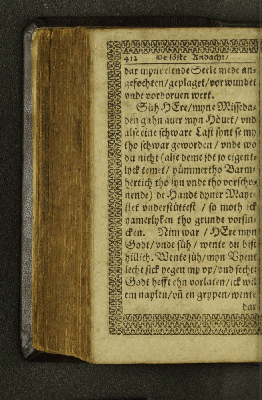 412 De söste Andacht/
dar myne elende Seele mede an-
gefochten/geplaget/vorwundet
vnde vordoruen wert.
Süh HEre/myne Misseda-
den gahn auer myn Höuet/vnd
alse eine schware Last synt se my
tho schwar geworden/vnde wo
du nicht (alse deme jdt jo eigent-
lyck temet/ vümmertho Barm-
hertich tho syn vnde tho vorscho-
nende) de Handt dyner Maye-
stet vnderstüttest / so moth ick
yamerlyken tho grunde vorsin-
cken. Nim war / HEre myn
Godt/vnde süh/ wente du bist
hillich. Wente süh/myn Vyent
lecht sick yegen my vp/vnd secht:
Godt hefft ehn vorlaten/ick wil
em naylen/vñ en grypen/wente
dar